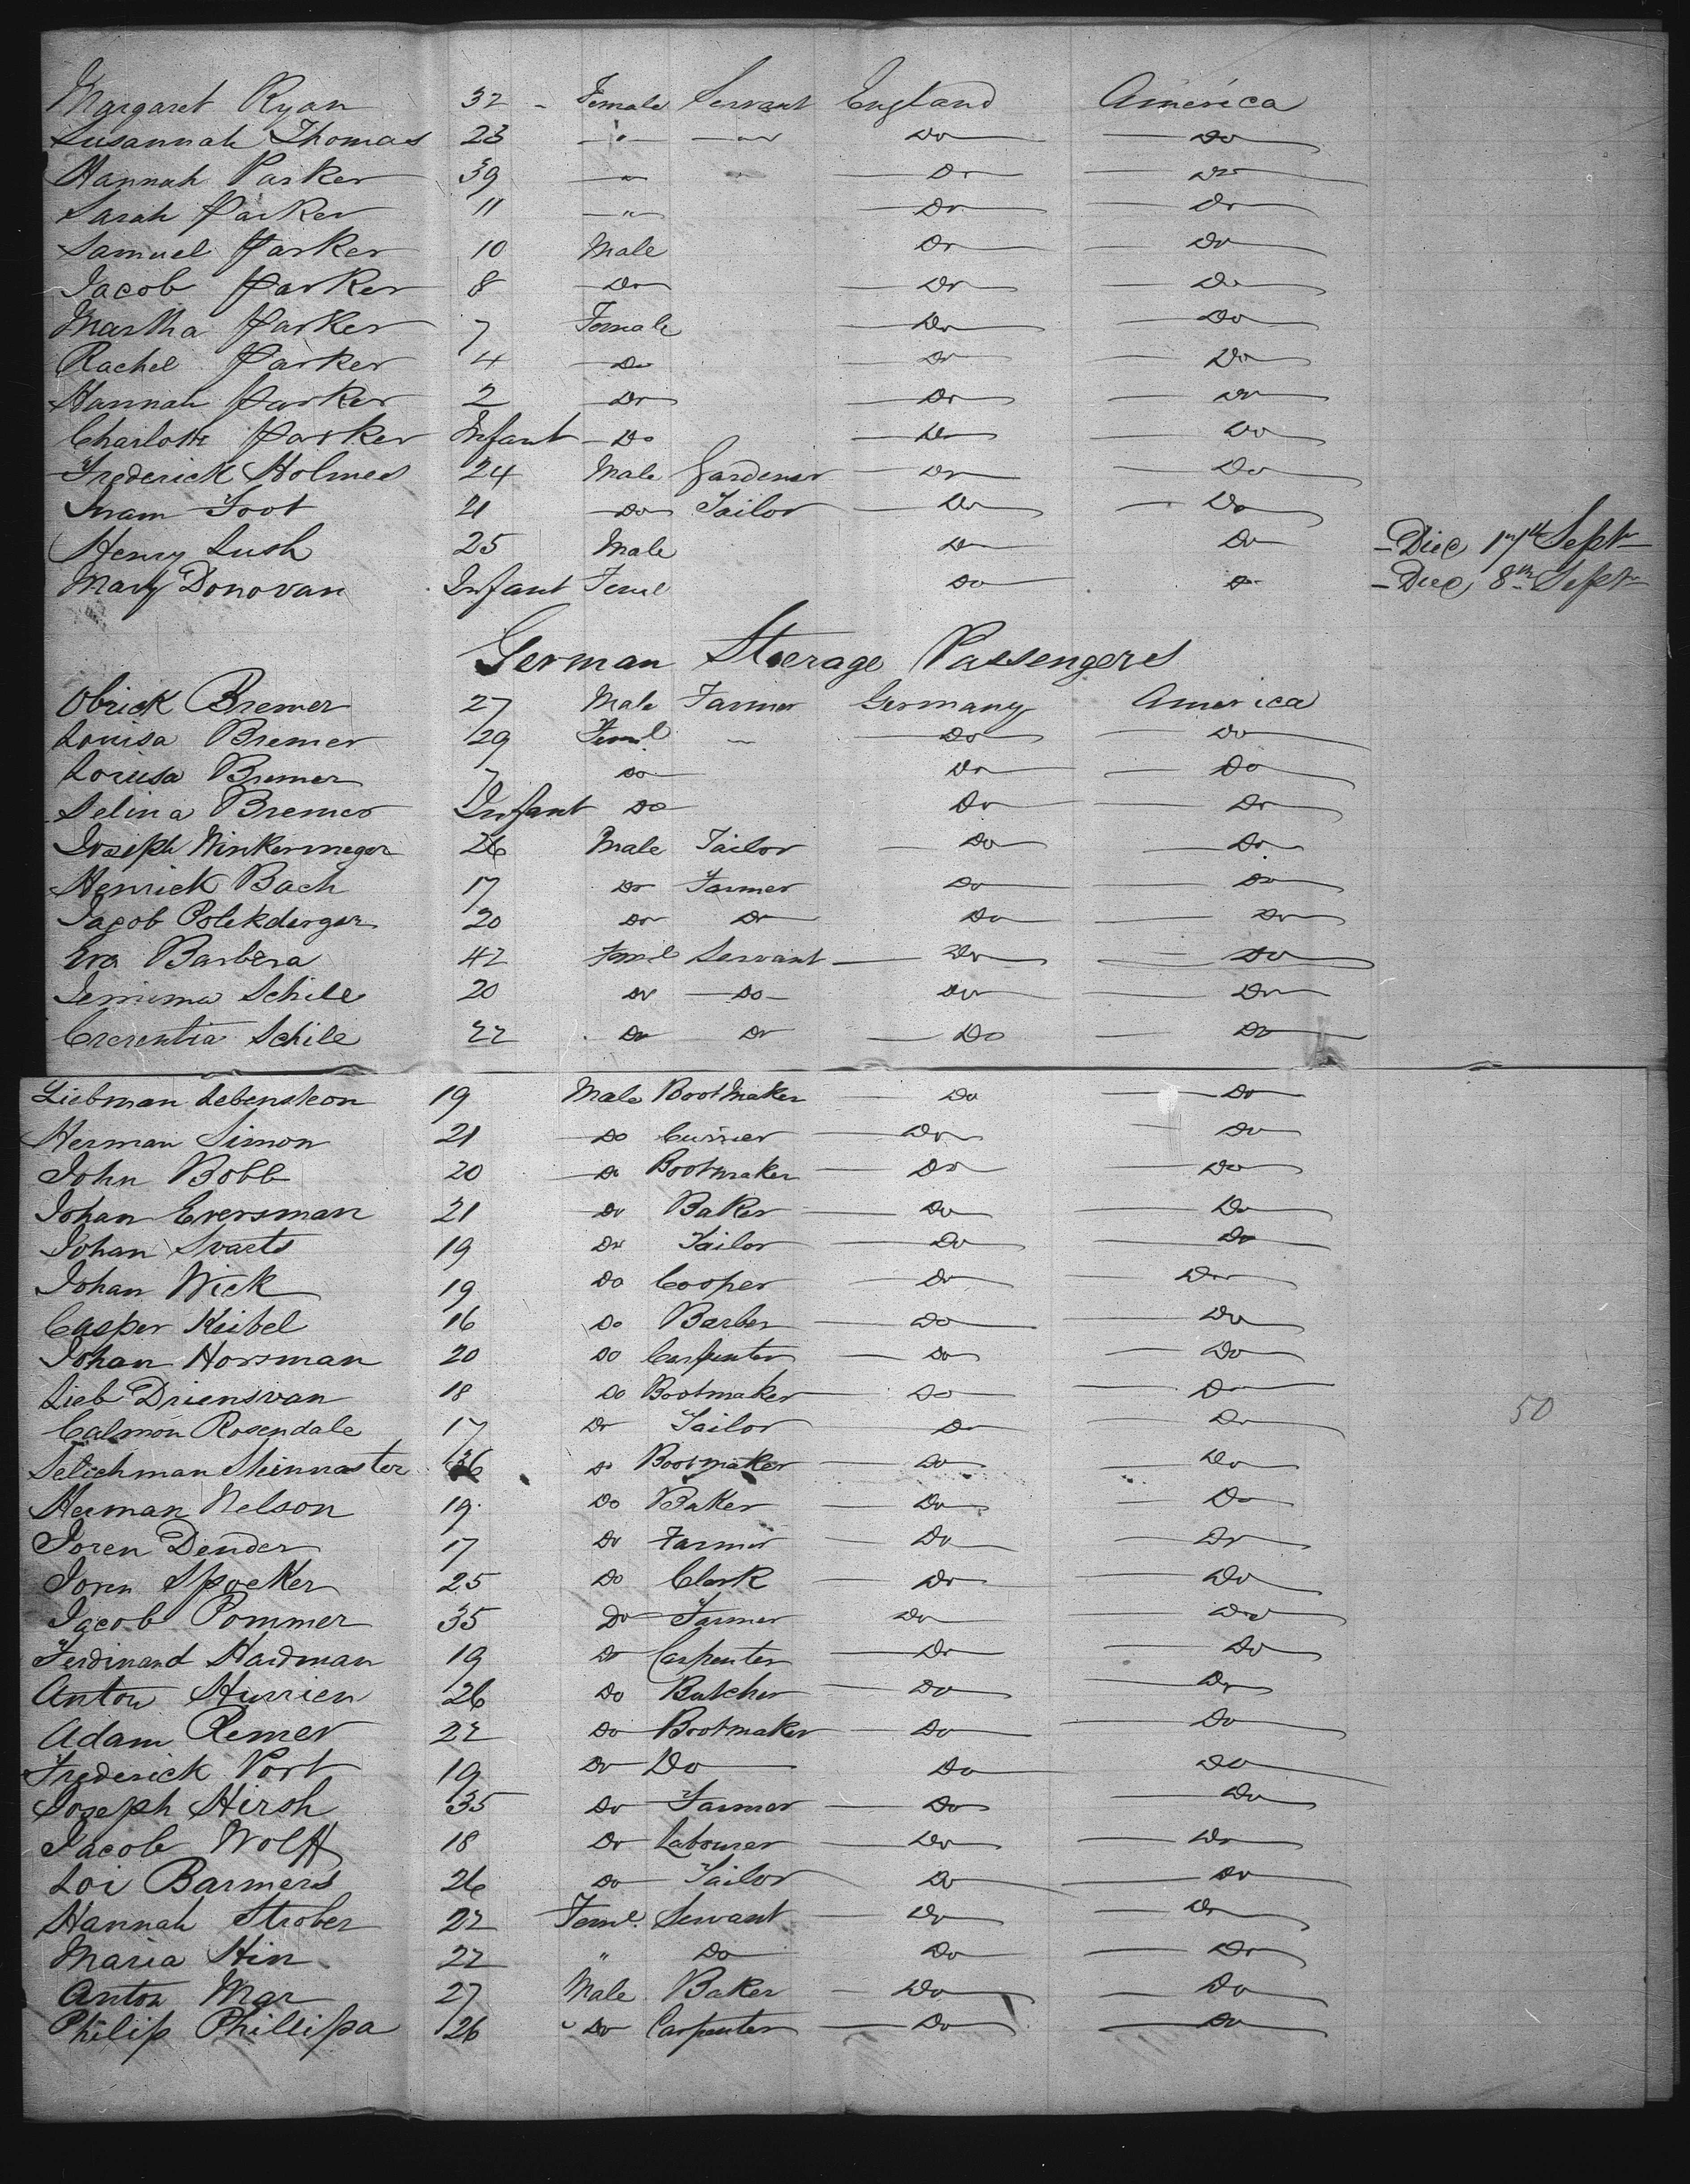 Margaret Ryan 32 - Female Servant England America
Susannah Thomas 23 " " Do Do
Hannah Parker 39 " " Do Do
Sarah Parker 11 " Do Do
Samuel Parker 10 Male Do Do
Jacob Parker 8 Do Do Do
Martha Parker 7 Female Do Do
Rachel Parker 4 Do Do Do
Hannah Parker 2 Do Do Do
Charlotte Parker Infant Do Do Do
Frederick Holmes 24 Male Gardener Do Do
Foot 21 Do Tailor Do Do
Henry Lush 25 Male Do Do - Died 17th Sept
Mary Donovan Infant Feml Do Do - Died 8th Sept
German Steerage Passengers
Obrick Bremer 27 Male Farmer Germany America
Louisa Bremer 29 Feml - Do Do
Louisa Bremer 7 Do Do Do
Selina Bremer Infant Do Do Do
Joseph Winkermeger 26 Male Tailor Do Do
Henrick Bach 17 Do Farmer Do Do
Jacob 20 Do Do Do Do
Eva Barbera 42 Feml Servant Do Do
Jemima Schile 20 Do Do Do Do
Crerentia Schile 22 Do Do Do Do
Liebman Lebensteon 19 Male Bootmaker Do Do
Herman Simon 21 Do Currier Do Do
John Bobb 20 Do Bootmaker Do Do
Johan Eversman 21 Do Baker Do Do
Johan Svarts 19 Do Tailor Do Do
Johan Wick 19 Do Cooper Do Do
Casper Keibel 16 Do Barber Do Do
Johan Horsman 20 Do Carpenter Do Do
Lieb Driensvan 18 Do Bootmaker Do Do
50
Calmon Rosendale 17 Do Tailor Do Do
Selichman Steinnaster 36 Do Bootmaker Do Do
Herman Nelson 19 Do Baker Do Do
Joren Dender 17 Do Farmer Do Do
Joren Spocker 25 Do Clerk Do Do
Jacob Pommer 35 Do Farmer Do Do
Ferdinand Hardman 19 Do Carpenter Do Do
Anton Hurrien 26 Do Butcher Do Do
Adam Remer 22 Do Bootmaker Do Do
Frederick Port 19 Do Do Do Do
Joseph Hirsh 35 Do Farmer Do Do
Jacob Wolff 18 Do Labourer Do Do
Loi Barmers 26 Do Tailor Do Do
Hannah Strober 22 Feml. Servant Do Do
Maria Hin 22 " Do Do Do
Anton Mar 27 Male Baker Do Do
Philip Phillipa 26 Do Carpenter Do Do